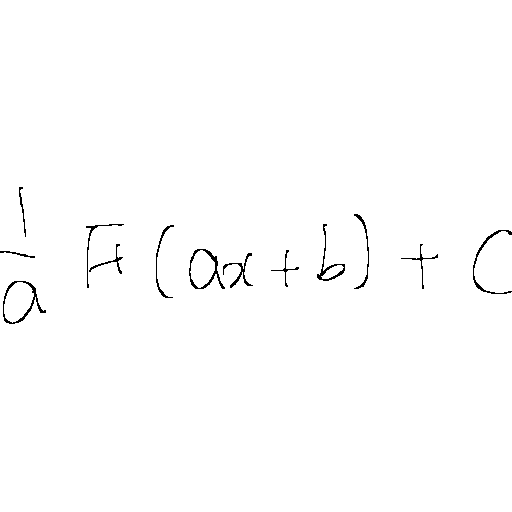 \frac{1}{a} F(ax+b) + C